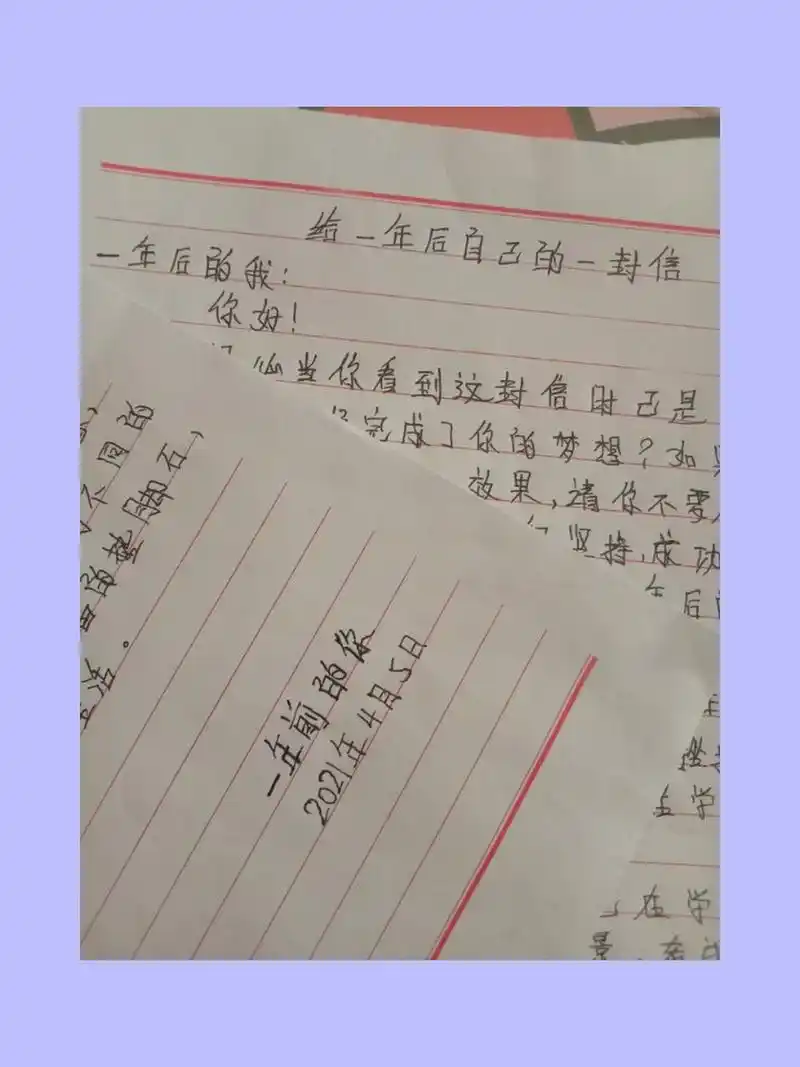 给一年后自己的一封信
一年后的我：
你好！
当你看到这封信时已是
完成了你的梦想？如
效果，请你不要
坚持，成功
年后
不同的
的垫脚石，
活。
一年前的你
2021年4月5日
学
在学
景，